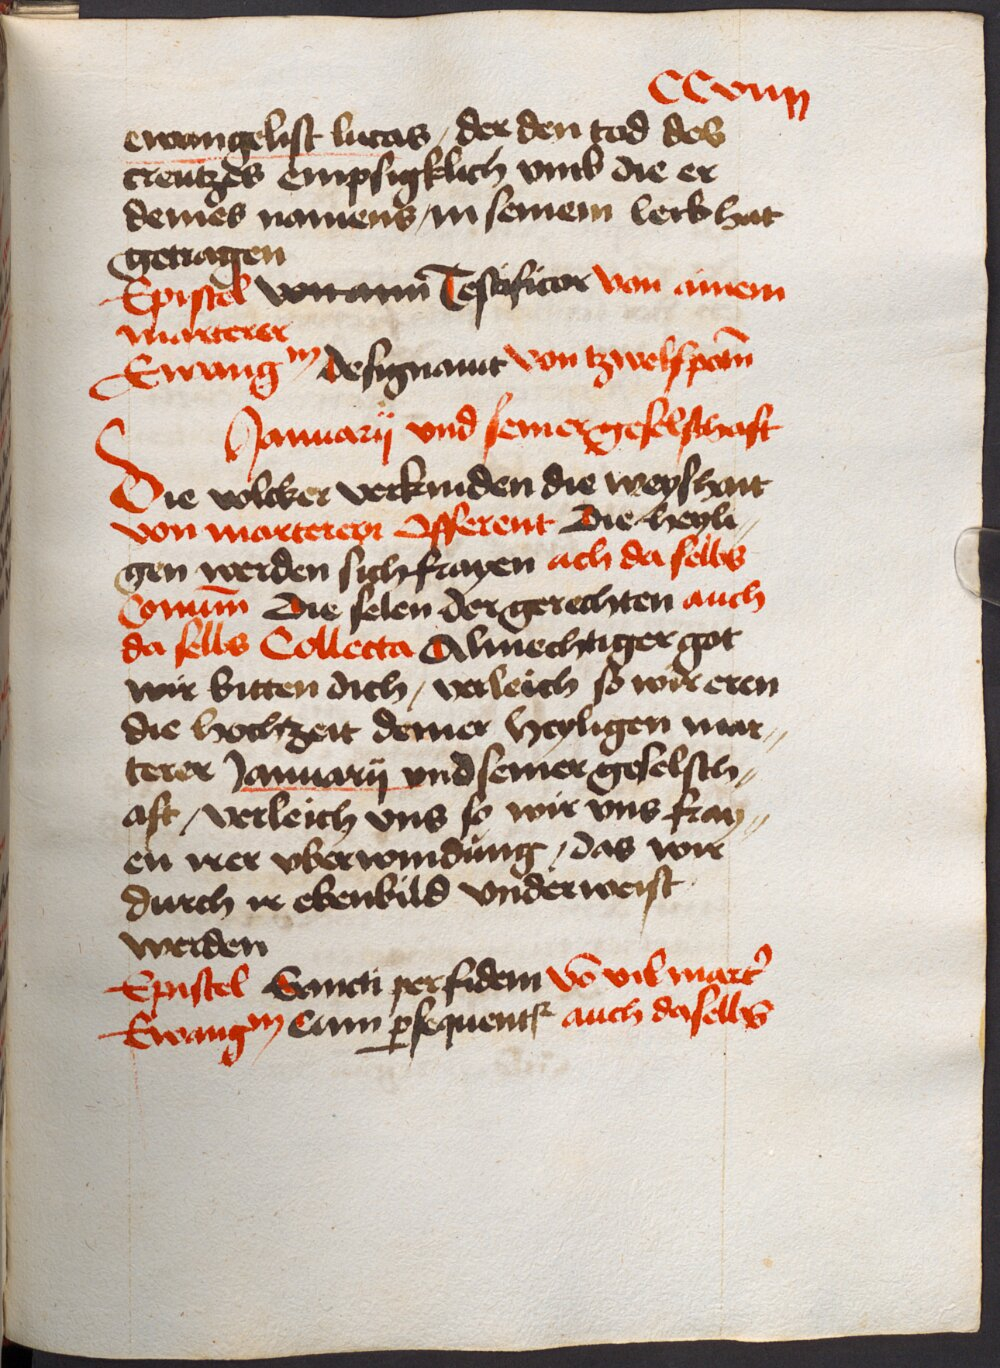 CCviiij
ewangelist lucas / der den tod des
creutzes empsigklich vmb die er
deines namens / in seinem leib hat
getragen
Epistel Testificor von ainem
marterer
Ewangm designauit von tzwelfpotn̄
Januarij vnd seiner geselschaft
Die volcker verkunden die weyshait
von marterern Offerent Die heyli//
gen werden sich frayen ach da selbs
Comūn Die selen der gerechten auch
da sellbs Collecta Almechtiger got
wir bitten dich / verleich so wir eren
die hochzeit deiner heyligen mar//
terer Januarij vnd seiner geselsch//
aft / verleich vns so wir vns fray//
en irer vberwindung / das wir
durch ir ebenbild vnderweist
werden
Epistel Sancti per fidem vō vil mart̉
Ewangm Cum ꝑsequentr auch dasellbs